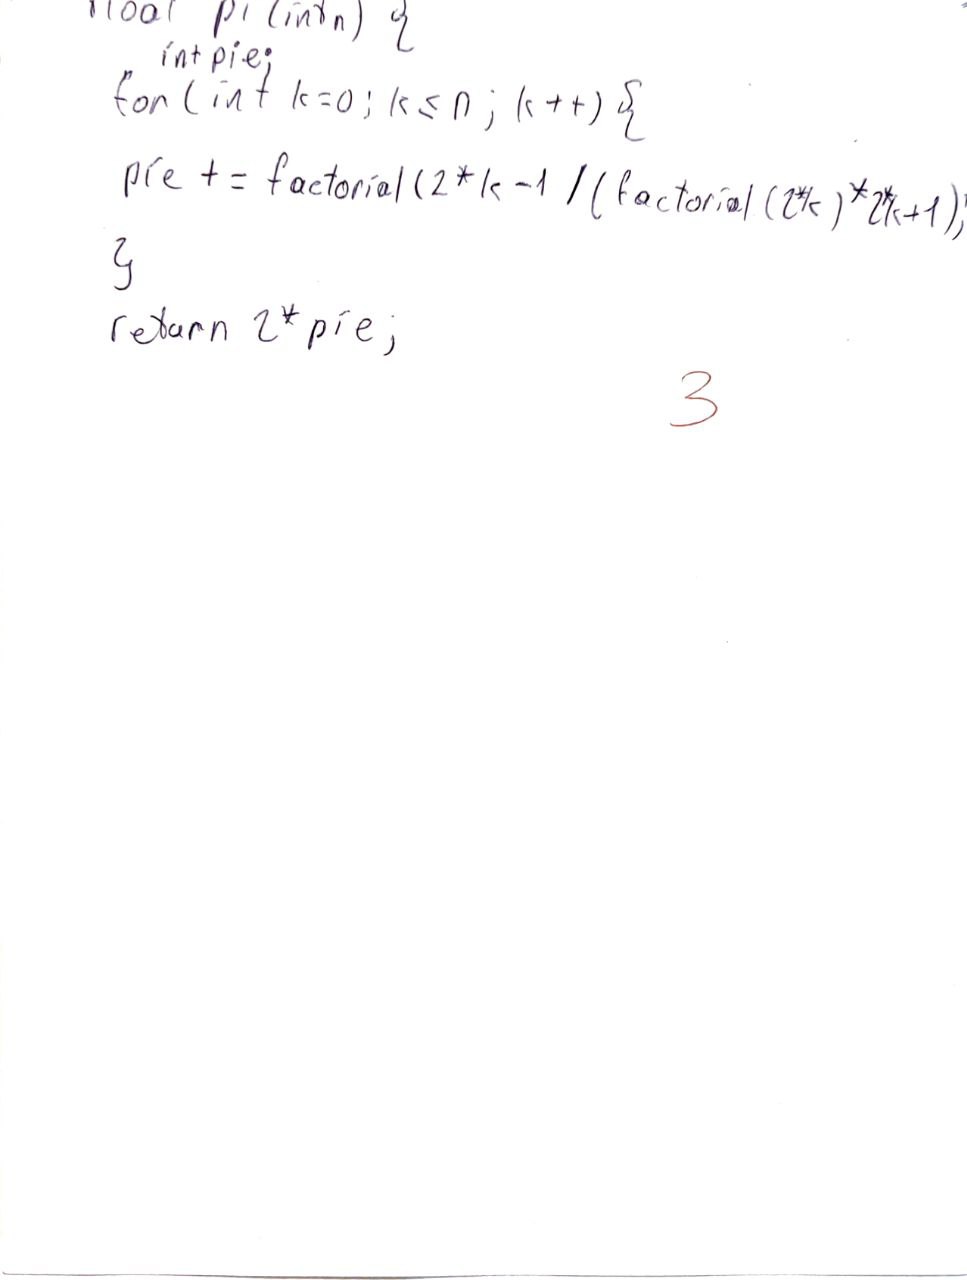 float pi(int n) {
int pie;
for (int k=0; k≤n; k++) {
pie += factorial(2*k-1/(factorial(2*k)*2*k+1);
}
return 2*pie;
3